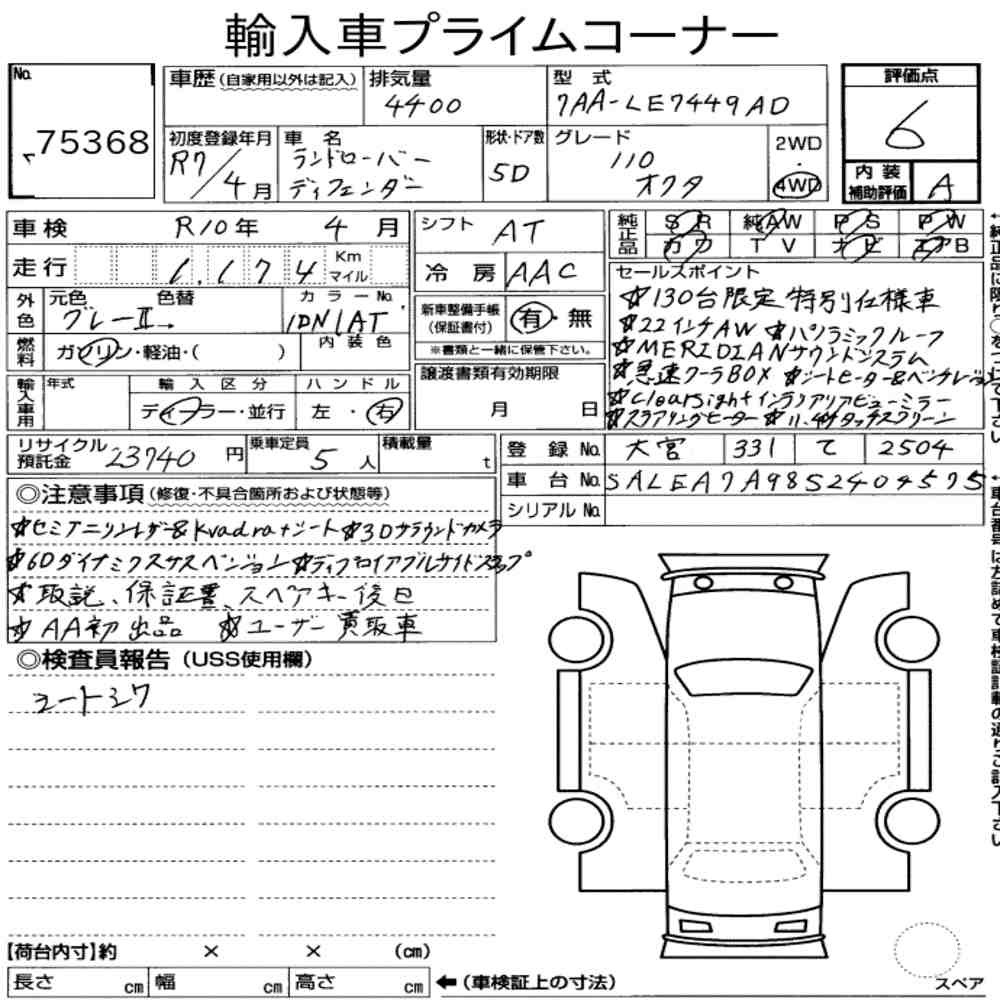 輸入車プライムコーナー
No. 75368
車歴(自家用以外は記入)
排気量 4400
型式 7AA-LE7449AD
評価点 6
初度登録年月 R7/4月
車名 ランドローバー ディフェンダー
形状・ドア数 5D
グレード 110 オクタ
2WD・4WD
内装補助評価 A
車検 R10年 4月
シフト AT
純正品 SR 純AW PS PW
カワ TV ナビ エアB
走行 1,174 Km マイル
冷房 AAC
外色 元色 色替 グレーII→
カラーNo. 1DN1AT
内装色
燃料 ガソリン・軽油・( )
新車整備手帳(保証書付) 有・無
※書類と一緒に保管下さい。
輸入車用 年式
輸入区分 ディーラー・並行
ハンドル 左・右
譲渡書類有効期限 月 日
セールスポイント
☆130台限定特別仕様車
☆22インチAW ☆パノラミックルーフ
☆MERIDIANサウンドシステム
☆急速クーラBOX ☆シートヒーター&ベンチレーション
☆ClearSightインテリアリアビューミラー
☆ステアリングヒーター ☆11.4タッチスクリーン
リサイクル預託金 23740円
乗車定員 5人
積載量 t
登録No. 大宮 331 て 2504
車台No. SALEA7A98S2404575
シリアルNo.
◎注意事項(修復・不具合箇所および状態等)
☆セミアニリンレザー&Kvadratシート ☆3Dサラウンドカメラ
☆6Dダイナミクスサスペンション ☆ディプロイアブルサイドステップ
☆取説、保証書、スペアキー後日
☆AA初出品 ☆ユーザー買取車
◎検査員報告(USS使用欄)
シートシワ
【荷台内寸】約 × × (cm)
長さ cm 幅 cm 高さ cm ←(車検証上の寸法)
スペア